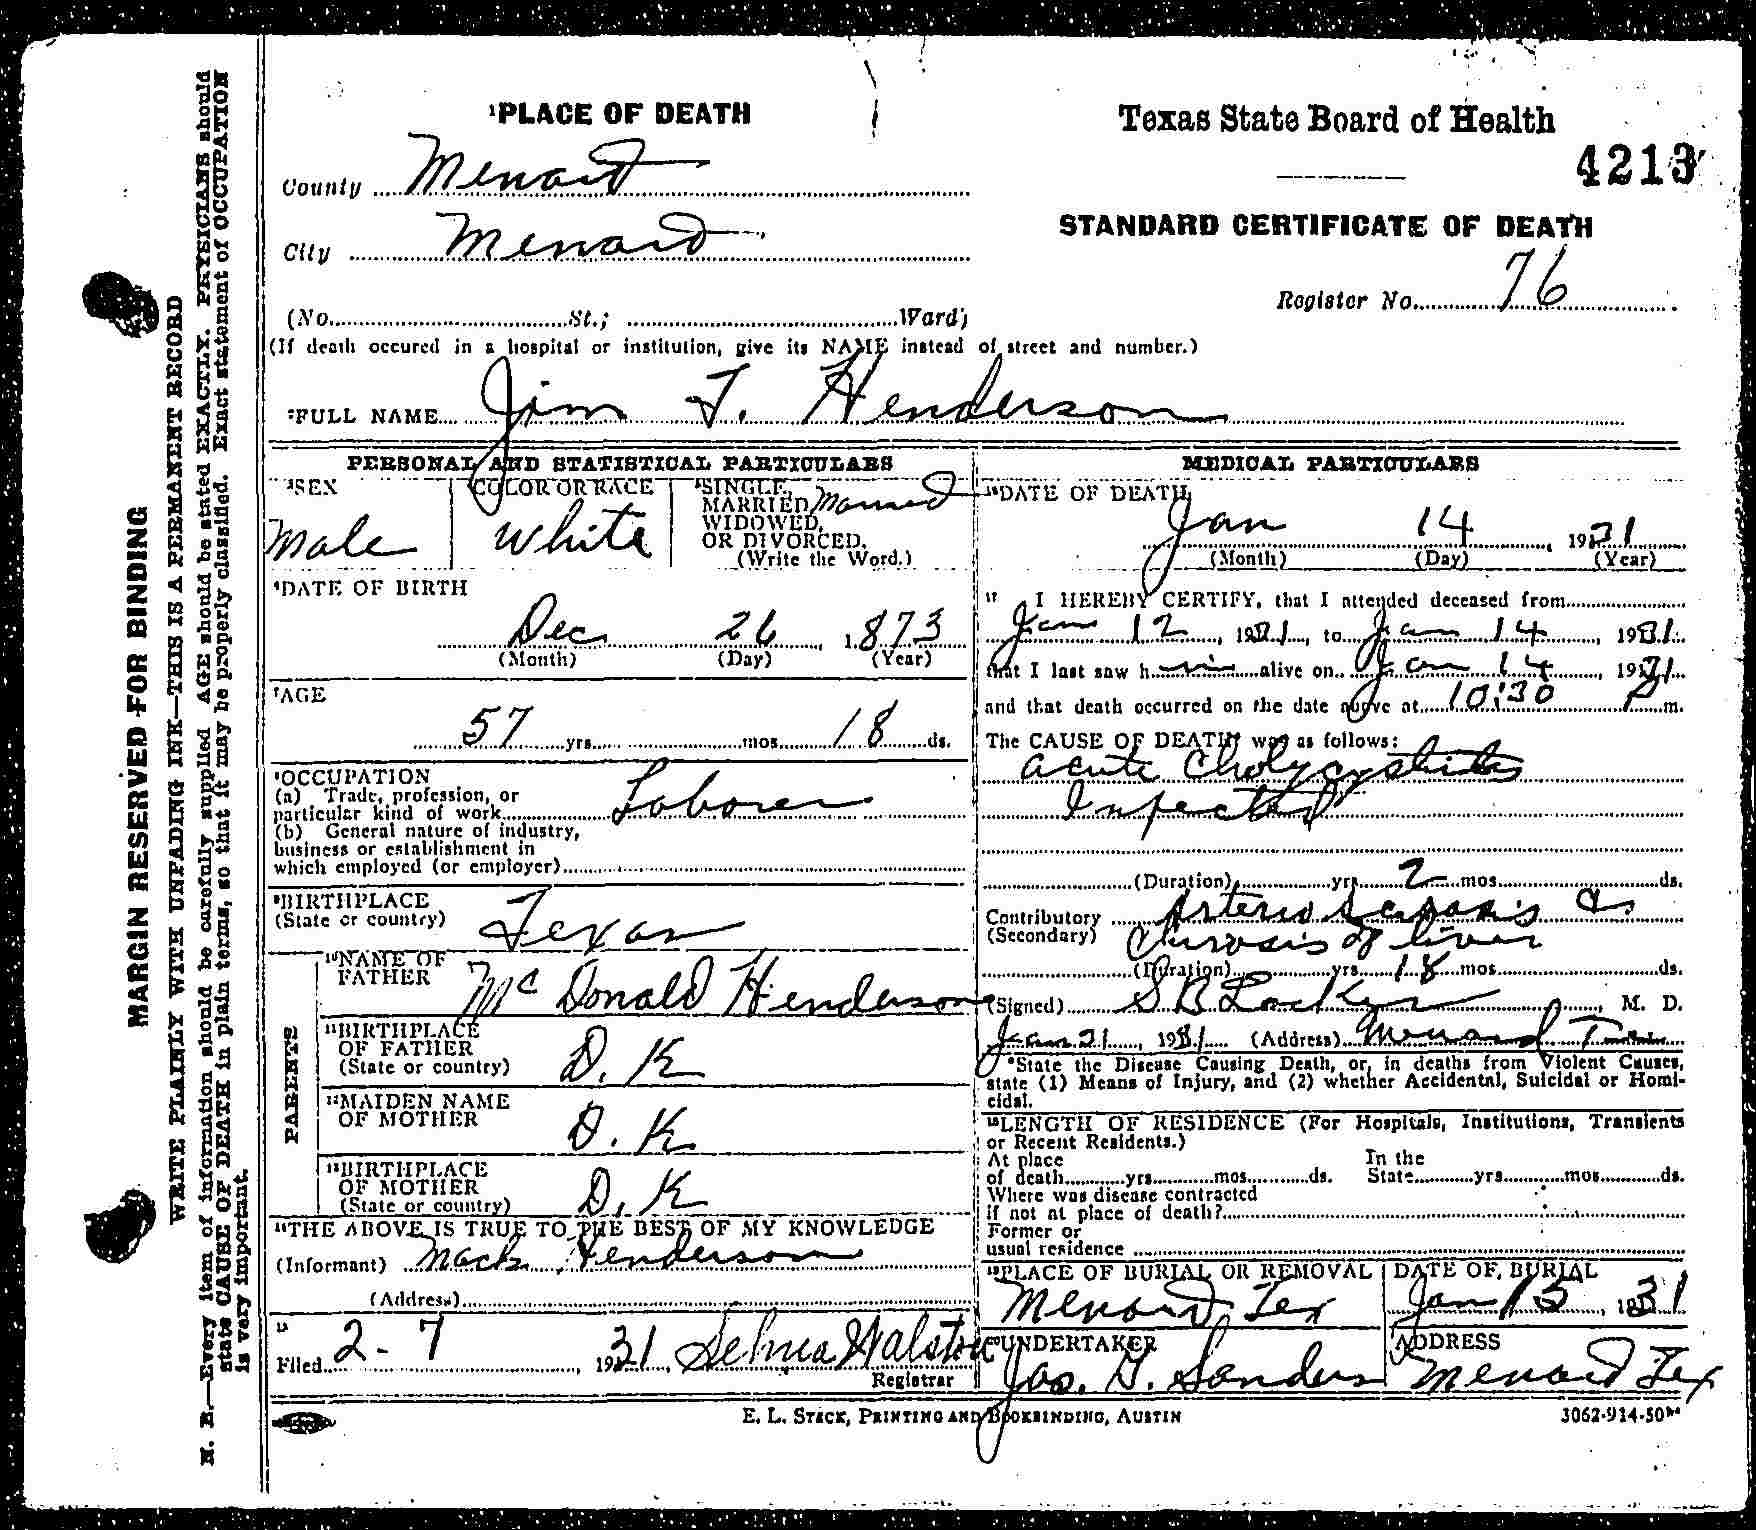 MARGIN RESERVED FOR BINDING
WRITE PLAINLY WITH UNFADING INK—THIS IS A PERMANENT RECORD
N. B.—Every item of information should be carefully supplied AGE should be stated EXACTLY. PHYSICIANS should
state CAUSE OF DEATH in plain terms, so that it may be properly classified. Exact statement of OCCUPATION
is very important.
¹PLACE OF DEATH
Texas State Board of Health
4213
County Menard
City Menard
STANDARD CERTIFICATE OF DEATH
Register No. 76
(No. St.; Ward)
(If death occured in a hospital or institution, give its NAME instead of street and number.)
²FULL NAME Jim T. Henderson
PERSONAL AND STATISTICAL PARTICULARS
³SEX
Male
COLOR OR RACE
White
⁵SINGLE,
MARRIED, Married
WIDOWED,
OR DIVORCED.
(Write the Word.)
⁶DATE OF BIRTH
Dec 26, 1873
(Month) (Day) (Year)
⁷AGE
57 yrs. mos. 18 ds.
⁸OCCUPATION
(a) Trade, profession, or
particular kind of work Laborer
(b) General nature of industry,
business or establishment in
which employed (or employer)
⁹BIRTHPLACE
(State or country) Texas
PARENTS
¹⁰NAME OF
FATHER McDonald Henderson
¹¹BIRTHPLACE
OF FATHER
(State or country) D. K
¹²MAIDEN NAME
OF MOTHER D. K
¹³BIRTHPLACE
OF MOTHER
(State or country) D. K
¹⁴THE ABOVE IS TRUE TO THE BEST OF MY KNOWLEDGE
(Informant) Mack Henderson
(Address)
¹⁵
Filed 2-7, 1931 Selma Walston
Registrar
MEDICAL PARTICULARS
¹⁶DATE OF DEATH
Jan 14, 1931
(Month) (Day) (Year)
¹⁷ I HEREBY CERTIFY, that I attended deceased from
Jan 12, 1931, to Jan 14, 1931
that I last saw h im alive on Jan 14, 1931
and that death occurred on the date above at 10:30 P m.
The CAUSE OF DEATH was as follows:
Acute Cholycystitis
Infected
(Duration) yrs. 2 mos. ds.
Contributory Arterio
(Secondary) Chirosis of liver
(Duration) yrs. 18 mos. ds.
(Signed) S B Locker, M. D.
Jan 21, 1931 (Address) Menard Tex
*State the Disease Causing Death, or, in deaths from Violent Causes,
state (1) Means of Injury, and (2) whether Accidental, Suicidal or Homi-
cidal.
¹⁸LENGTH OF RESIDENCE (For Hospitals, Institutions, Transients
or Recent Residents.)
At place In the
of death yrs. mos. ds. State yrs. mos. ds.
Where was disease contracted
if not at place of death?
Former or
usual residence
¹⁹PLACE OF BURIAL OR REMOVAL
Menard Tex
DATE OF BURIAL
Jan 15, 1931
²⁰UNDERTAKER
Jas. G. Sanders
ADDRESS
Menard Tex
E. L. STECK, PRINTING AND BOOKBINDING, AUSTIN
3062-914-50M